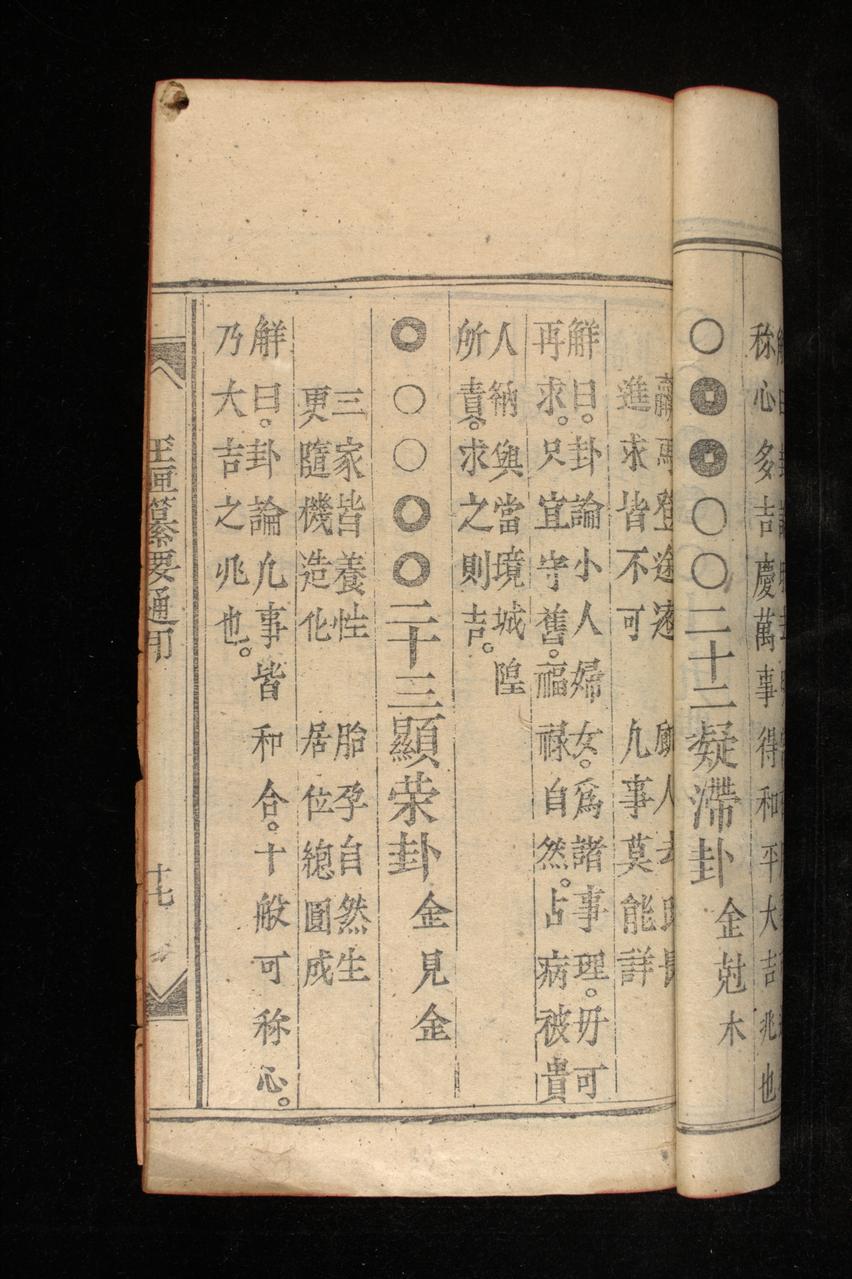 称心多吉慶萬事得和平大吉兆也
○◉◉○○二十二凝滯卦 金尅木
羸馬登途遠
進求皆不可 凢事莫能詳
觧曰。卦論小人婦女。爲諸事理。毋可
再求。只宜守舊。福禄自然。占病被貴
人衲與當境城隍
所責。求之則吉。
◉○○◉◉二十三顯荣卦 金見金
三家皆養性 胎孕自然生
更隨機造化 居位總圓成
觧曰。卦論凢事皆和合。十般可称心。
乃大吉之兆也。
玉匣纂要通用
十七